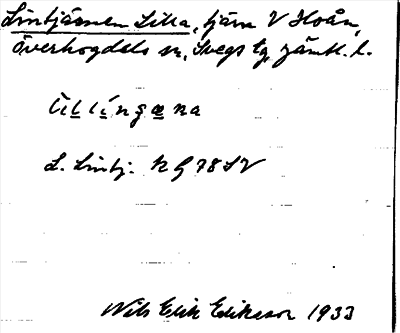 Lintjärnen Lilla, tjärn V Hoån,
Överhogdals sn, Svegs tg, Jämtl. l.
L. Lintj. KG 78 SV
Nils Erik Eriksson 1933